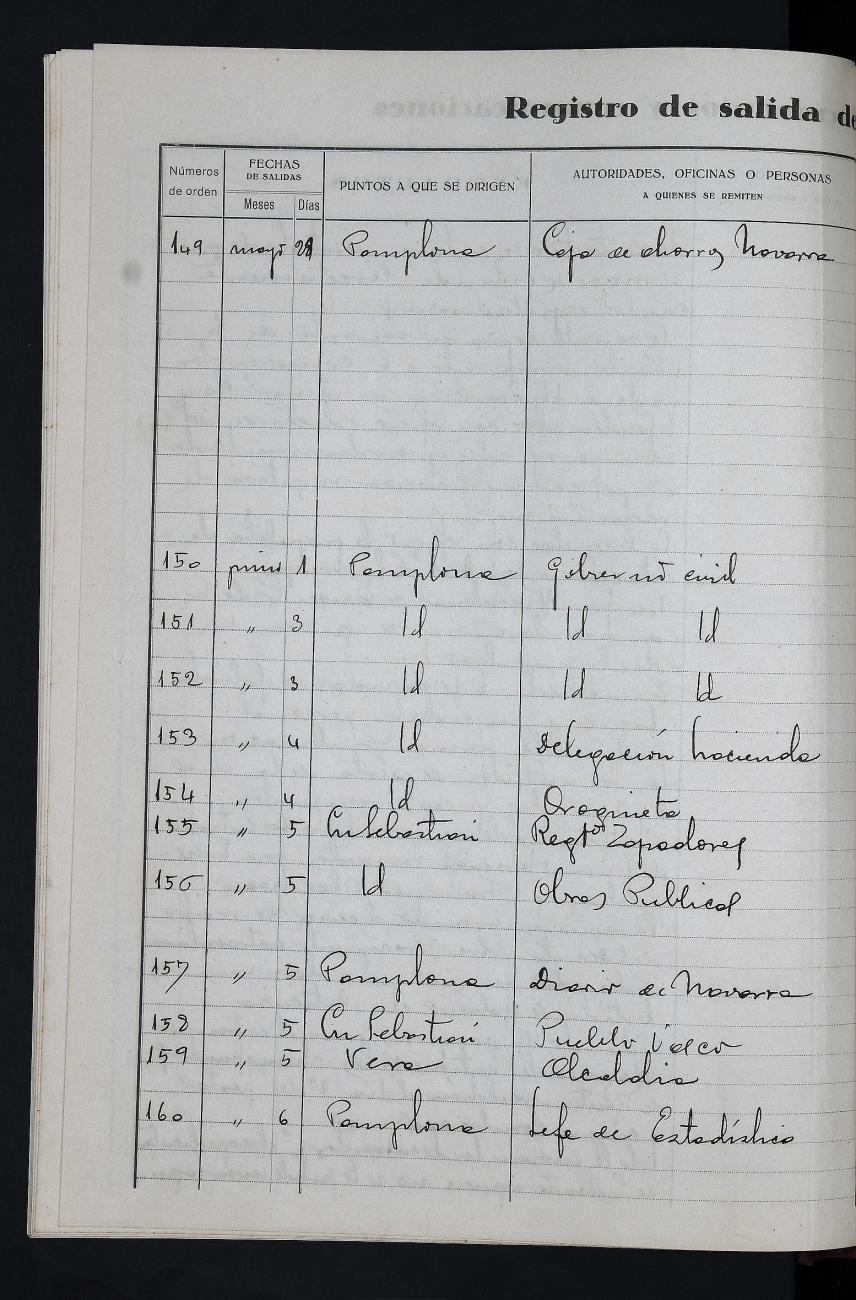 Registro de salida de
Números de orden FECHAS DE SALIDAS Meses Días PUNTOS A QUE SE DIRIGEN AUTORIDADES, OFICINAS O PERSONAS A QUIENES SE REMITEN
149 mayo Pamplona Caja de ahorros Navarra
150 junio 1 Pamplona Gobierno civil
151 " 3 Id Id Id
152 " 3 Id Id Id
153 " 4 Id Delegación hacienda
154 " 4 Id Oroquieta
155 " 5 Sn Sebastián Regto Zapadores
156 " 5 Id Obras Publicas
157 " 5 Pamplona Diario de Navarra
158 " 5 Sn Sebastián Pueblo Vasco
159 " 5 Vera Alcaldia
160 " 6 Pamplona Jefe de Estadística